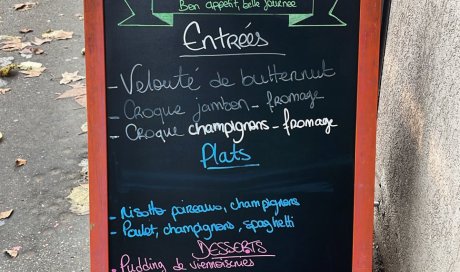 Bon appétit, belle journée
Entrées
- Velouté de butternut
- Croque jambon - fromage
- Croque champignons - fromage
Plats
- Risotto poireaux, champignons
- Poulet, champignons, spaghetti
DESSERTS
- Pudding de viennoiseries